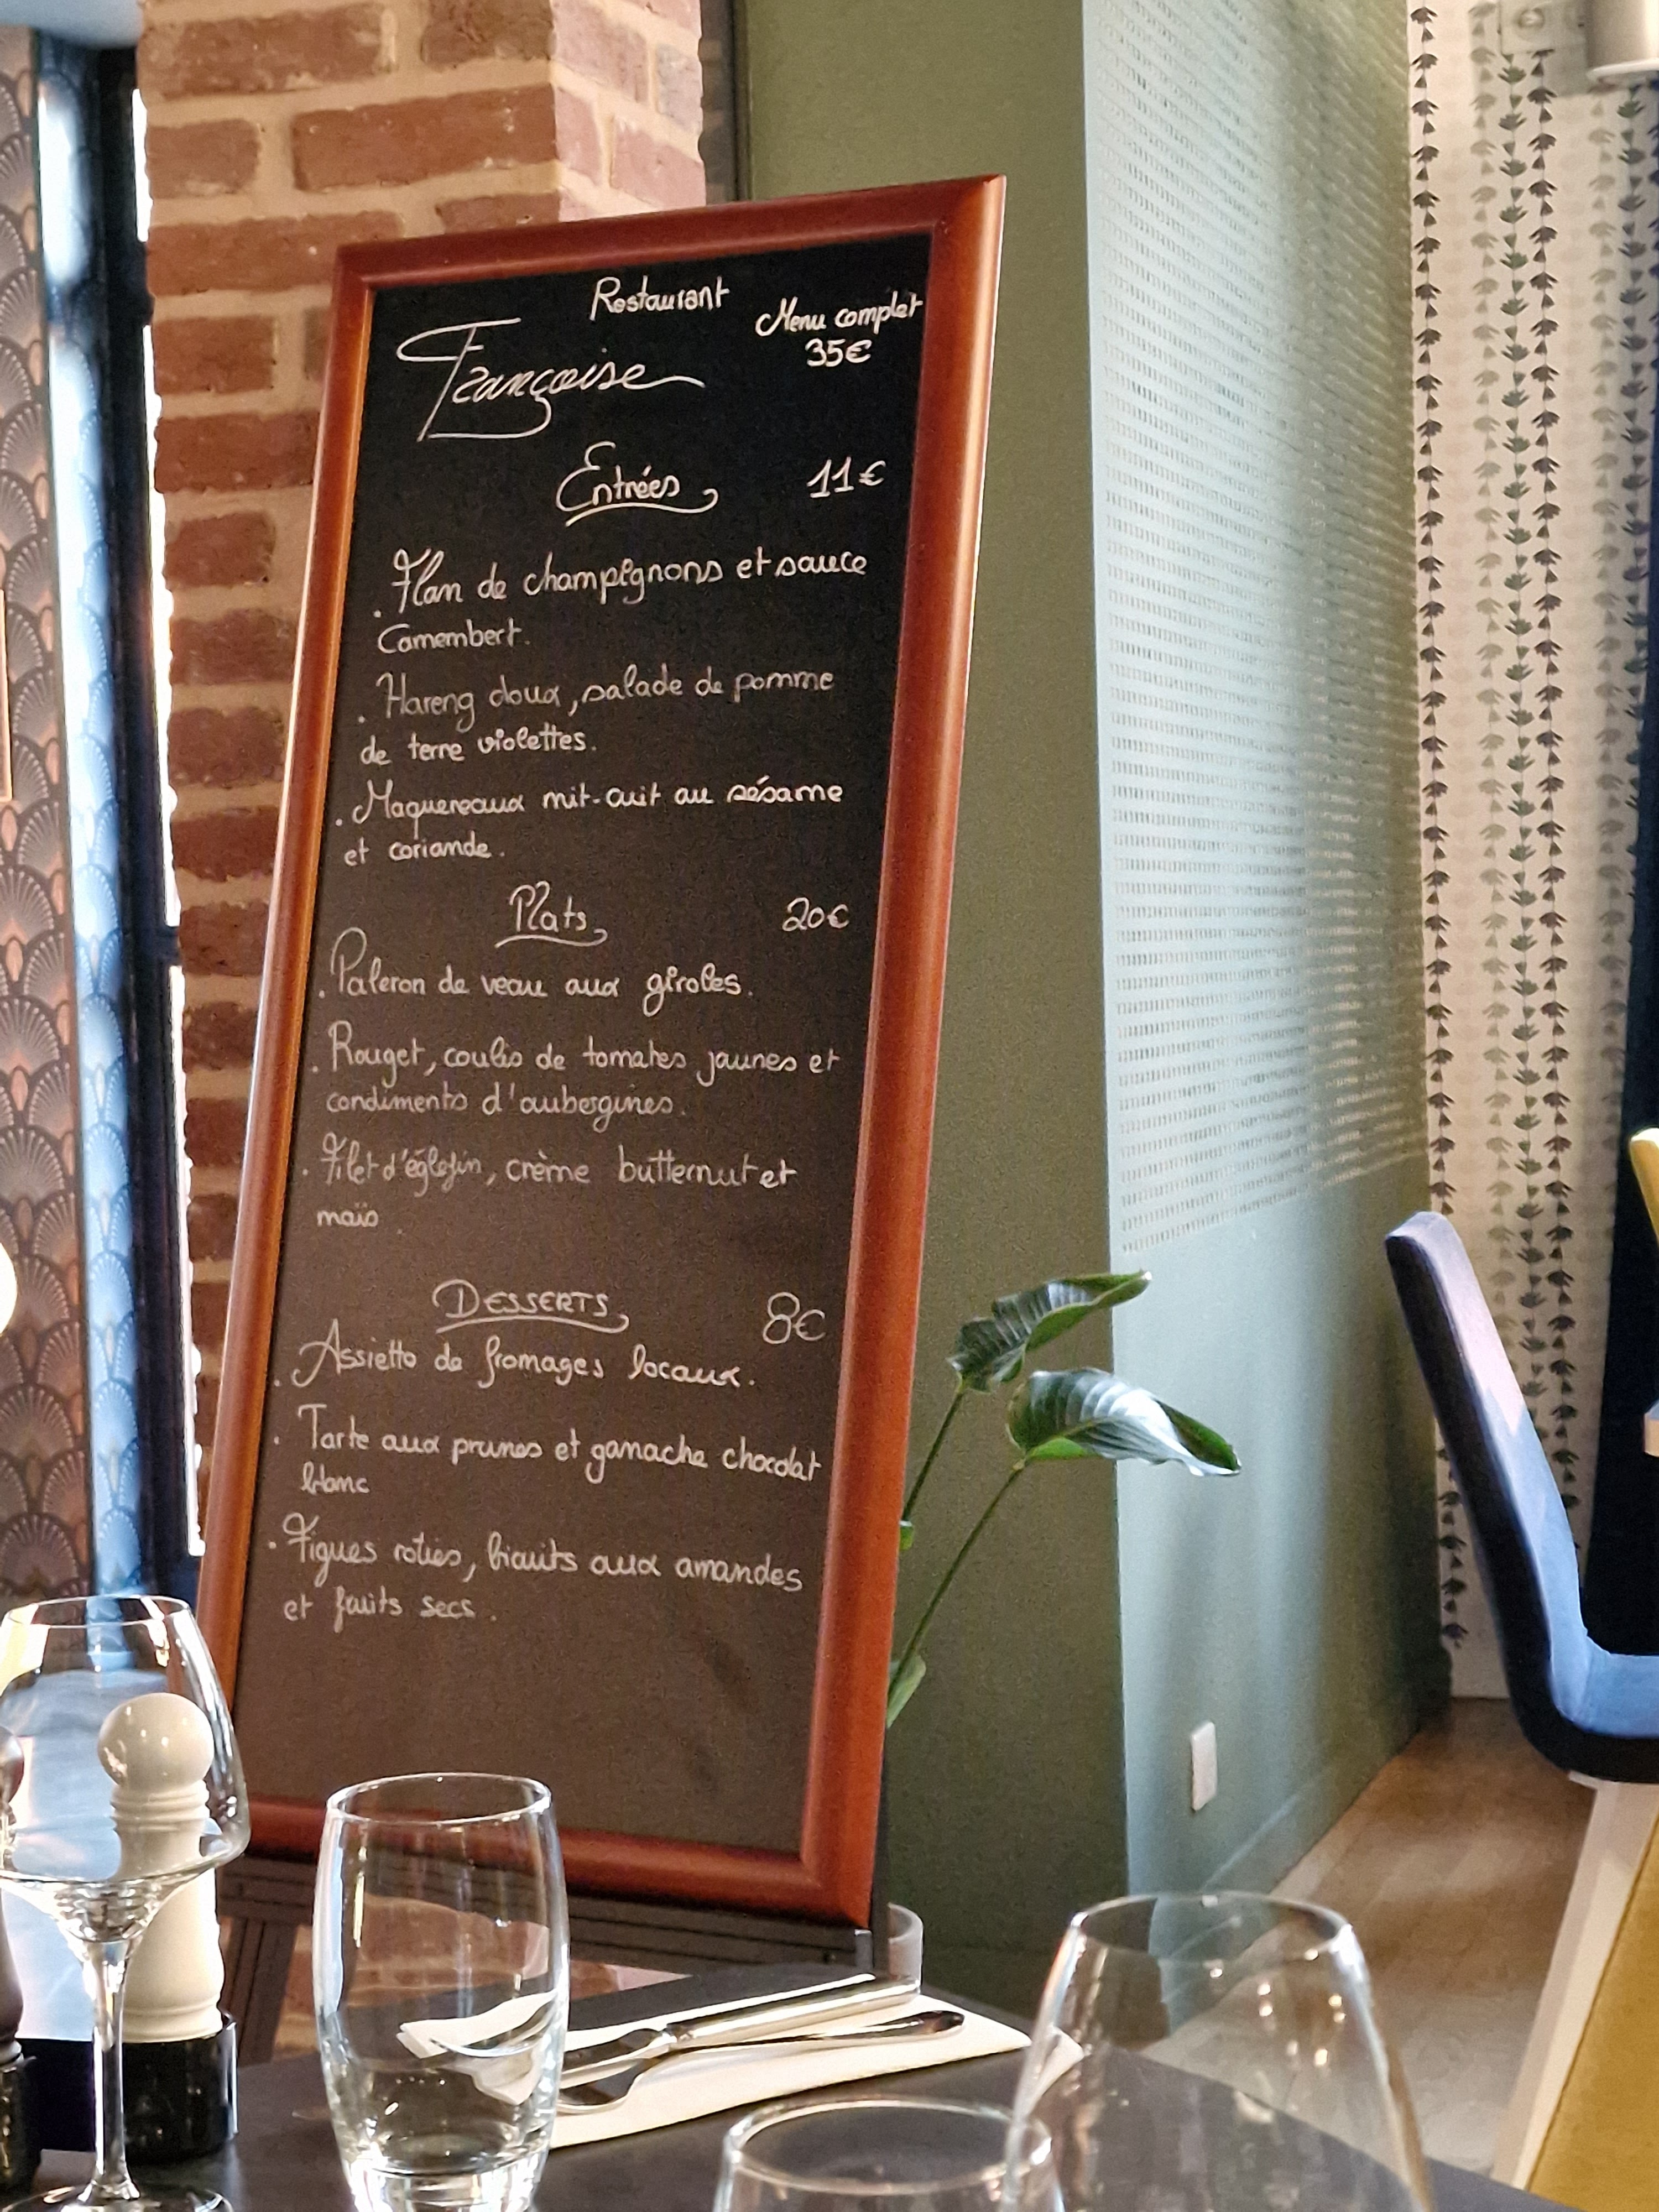 Restaurant
Menu complet
35€
Françoise
Entrées 11€
. Flan de champignons et sauce
Camembert.
. Hareng doux, salade de pomme
de terre violettes.
. Maquereaux mit-cuit au sésame
et coriande.
Plats 20€
. Paleron de veau aux giroles.
. Rouget, coulis de tomates jaunes et
condiments d'aubergines.
. Filet d'églefin, crème butternut et
maïs.
DESSERTS 8€
. Assiette de fromages locaux.
. Tarte aux prunes et ganache chocolat
blanc
. Figues roties, biscuits aux amandes
et fruits secs.